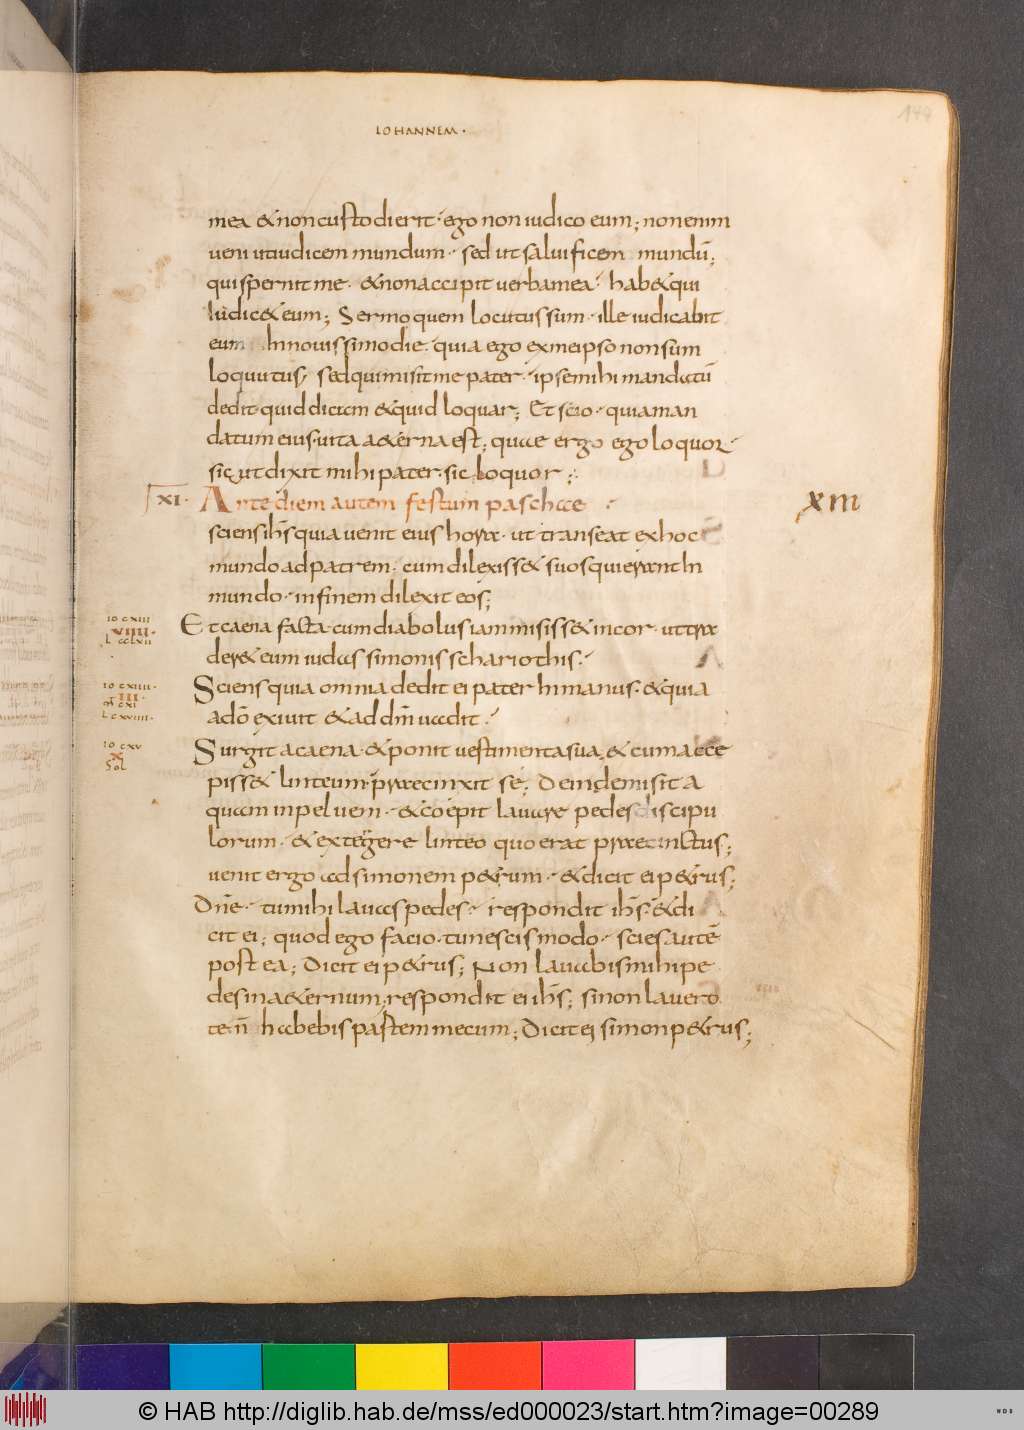 IOHANNEM·
144
mea & non custodierit· ego non iudico eum; non enim
ueni ut iudicem mundum· sed ut saluificem mundū;
qui spernit me· & non accipit uerba mea· hab& qui
iudic& eum; Sermo quem locutus sum· ille iudicabit
eum In nouissimo die· quia ego ex meipso non sum
loquutus, sed qui misit me pater· ipse mihi mandatū
dedit· quid dicam & quid loquar; Et scio· quia man
datum eius uita a&erna est; quae ergo ego loquor·
sicut dixit mihi pater· sic loquor;
XI· Ante diem autem festum paschae XIII
sciens ihs̄ quia uenit eius hora· ut transeat ex hoc
mundo ad patrem· cum dilexiss& suos qui erant In
mundo· in finem dilexit eos;
IO CXIII
VIIII·
L CCLXII
Et caena facta· cum diabolus iam misiss& in cor· ut tra
der& eum iudas simonis schariothis·
IO CXIIII·
III·
M CXI
L CXVIIII·
Sciens quia omnia dedit ei pater In manus· & quia
a dō exiuit & ad dm̄ uadit·
IO CXV
X
SOL
Surgit a caena· & ponit uestimenta sua, & cum acce
piss& linteum· praecinxit se; Deinde misit a
quam in peluem· & coepit lauare pedes discipu
lorum· & extergere linteo quo erat praecinctus;
uenit ergo ad simonem p&rum· & dicit ei p&rus;
Dn̄e· tu mihi lauas pedes· respondit ihs̄· & di
cit ei; quod ego facio· tu nescis modo· scies autē
post ea; Dicit ei p&rus; Non lauabis mihi pe
des in a&ernum; respondit ei ihs̄; si non lauero
te n̄ habebis pastem mecum; Dicit ei simon p&rus;
© HAB http://diglib.hab.de/mss/ed000023/start.htm?image=00289
WDB